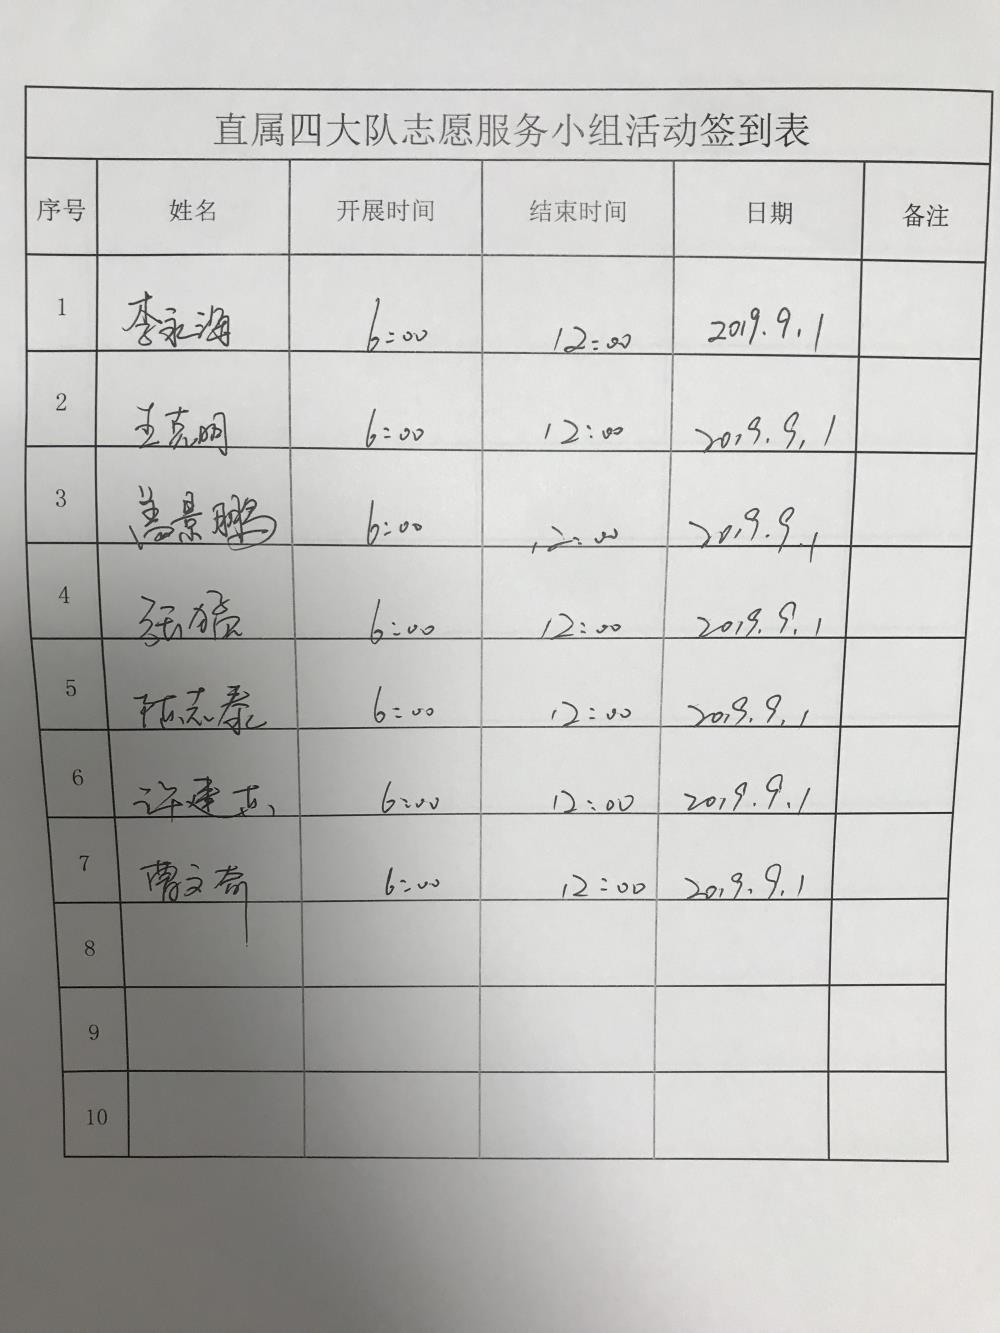 直属四大队志愿服务小组活动签到表
序号 姓名 开展时间 结束时间 日期 备注
1 李永海 6:00 12:00 2019.9.1
2 王克明 6:00 12:00 2019.9.1
3 盖景鹏 6:00 12:00 2019.9.1
4 张 6:00 12:00 2019.9.1
5 陈志泰 6:00 12:00 2019.9.1
6 许建 6:00 12:00 2019.9.1
7 曹文奇 6:00 12:00 2019.9.1
8
9
10